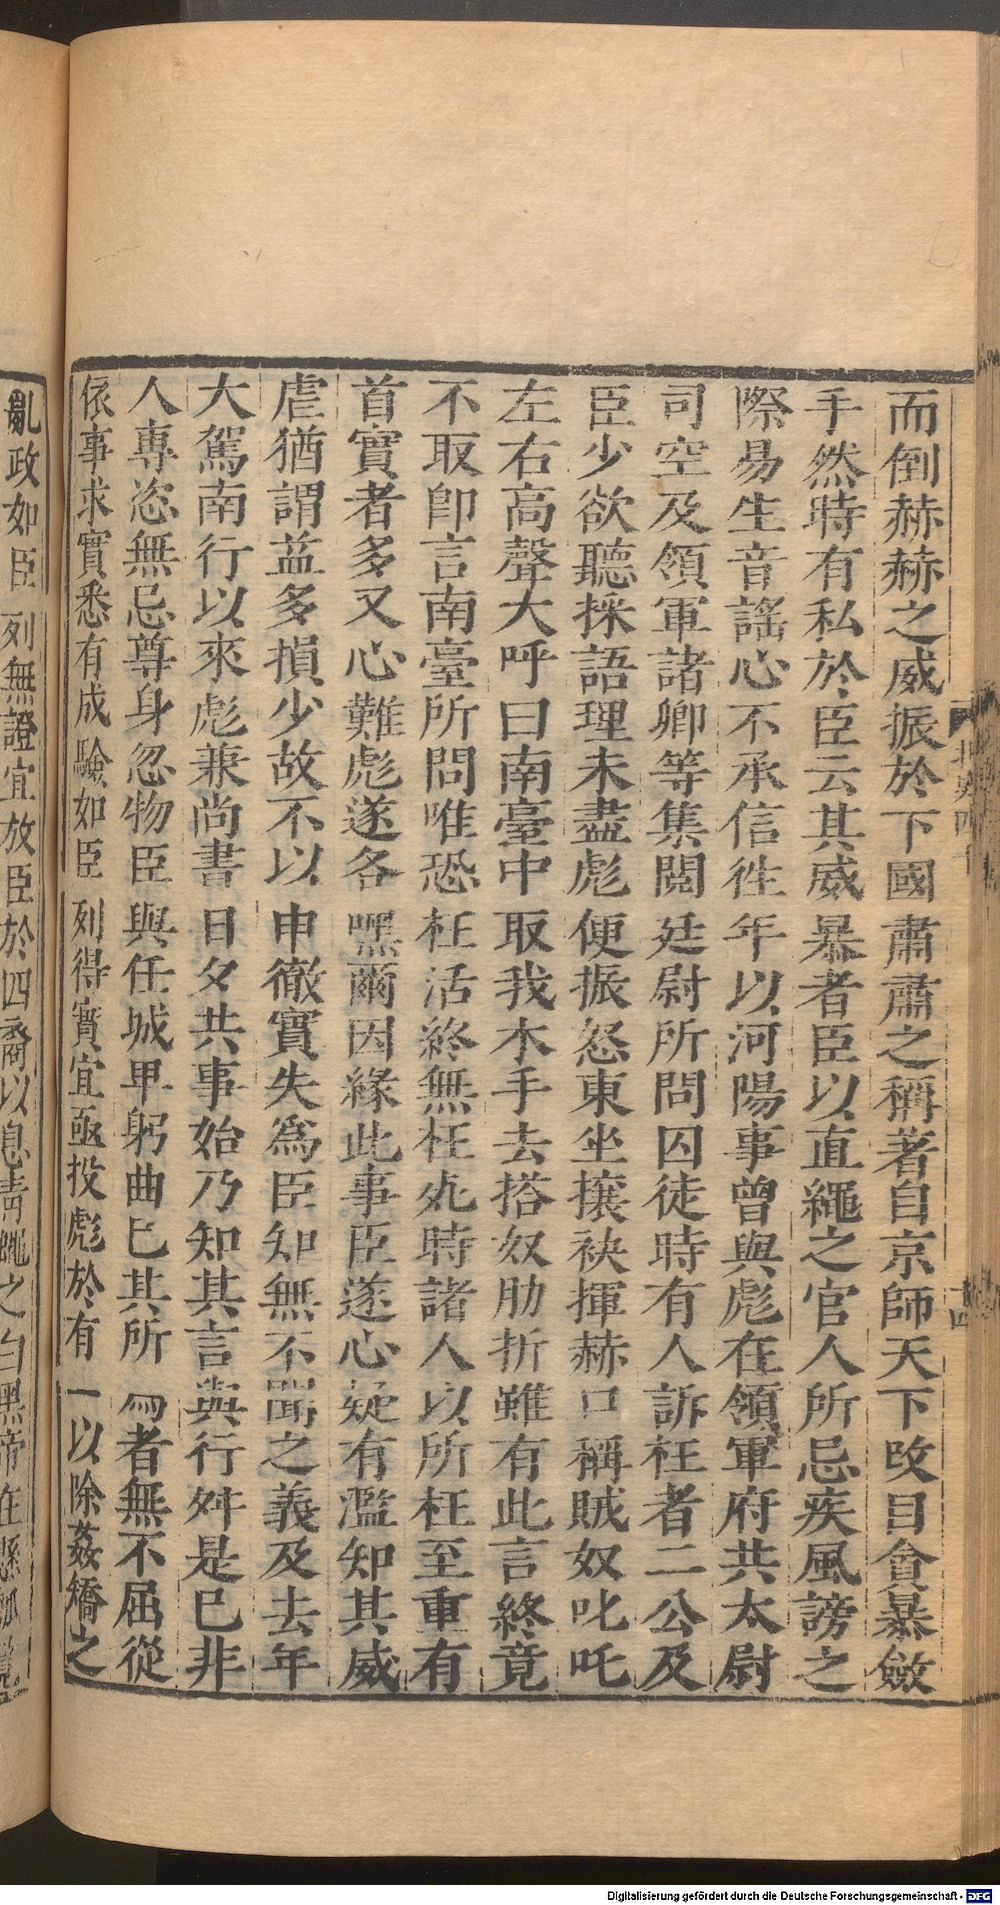 而倒赫赫之威振於下國肅肅之稱著自京師天下改目貪暴斂
手然時有私於臣云其威暴者臣以直繩之官人所忌疾風謗之
際易生音謠心不承信往年以河陽事曾與彪在領軍府共太尉
司空及領軍諸卿等集閱廷尉所問囚徒時有人訴枉者二公及
臣少欲聽採語理未盡彪便振怒東坐攘袂揮赫口稱賊奴叱吒
左右高聲大呼曰南臺中取我木手去搭奴肋折雖有此言終竟
不取卽言南臺所問唯恐枉活終無枉死時諸人以所枉至重有
首實者多又心難彪遂各嘿爾因緣此事臣遂心疑有濫知其威
虐猶謂益多損少故不以申徹實失爲臣知無不聞之義及去年
大駕南行以來彪兼尚書日夕共事始乃知其言與行舛是已非
人專恣無忌尊身忽物臣與任城甲躬曲己其所爲者無不屈從
依事求實悉有成驗如臣列得實宜亟投彪於有一以除姦矯之
亂政如臣列無證宜放臣於四裔以息靑蠅之白黑帝在懸瓠
北史四十
十四
Digitalisierung gefördert durch die Deutsche Forschungsgemeinschaft - DFG